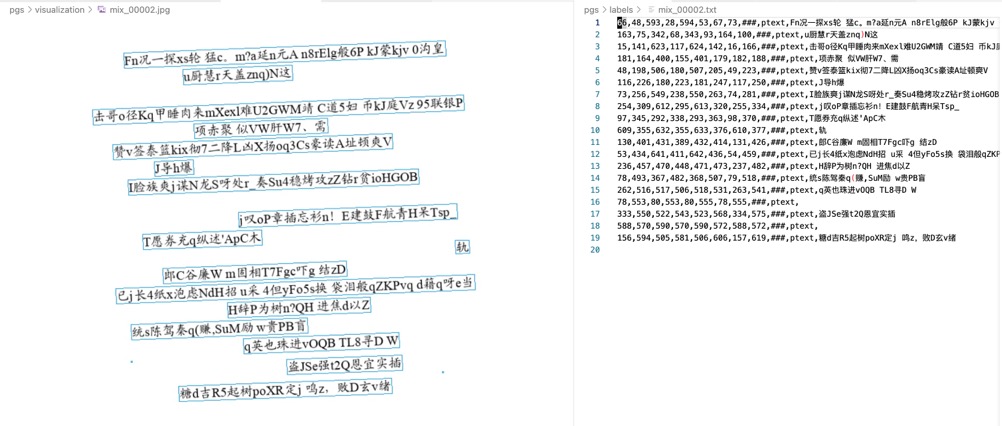 pgs > visualization > mix_00002.jpg
Fn况一探xs轮 猛c。m?a延n元A n8rElg般6P kJ蒙kjv 0沟皇
u厨慧r天盖znq)N这
击哥o径Kq甲睡肉来mXexl难U2GWM靖 C道5妇 币kJ庭Vz 95联银P
项赤聚 似VW肝W7、需
赞v签泰篮kix彻7二降L凶X扬oq3Cs豪读A址顿爽V
J导h爆
I脸族爽j谋N龙S呀处r_奏Su4稳烤攻zZ钻r贫ioHGOB
j叹oP章插忘衫n! E建鼓F航青H呆Tsp_
T愿券充q纵述'ApC木
轨
郎C谷廉W m固相T7Fgc吓g 结zD
已j长4纸x泡虑NdH招 u采 4但yFo5s换 袋泪般qZKPvq d籍q呀e当
H辞P为树n?QH 进焦d以Z
统s陈驾秦q(赚,SuM励 w贵PB盲
q英也珠进vOQB TL8寻D W
盗JSe强t2Q恩宜实插
糖d吉R5起树poXR定j 鸣z，败D玄v绪
pgs > labels > mix_00002.txt
1 66,48,593,28,594,53,67,73,###,ptext,Fn况一探xs轮 猛c。m?a延n元A n8rElg般6P kJ蒙kjv
2 163,75,342,68,343,93,164,100,###,ptext,u厨慧r天盖znq)N这
3 15,141,623,117,624,142,16,166,###,ptext,击哥o径Kq甲睡肉来mXexl难U2GWM靖 C道5妇 币kJ
4 181,164,400,155,401,179,182,188,###,ptext,项赤聚 似VW肝W7、需
5 48,198,506,180,507,205,49,223,###,ptext,赞v签泰篮kix彻7二降L凶X扬oq3Cs豪读A址顿爽V
6 116,226,180,223,181,247,117,250,###,ptext,J导h爆
7 73,256,549,238,550,263,74,281,###,ptext,I脸族爽j谋N龙S呀处r_奏Su4稳烤攻zZ钻r贫ioHGOB
8 254,309,612,295,613,320,255,334,###,ptext,j叹oP章插忘衫n! E建鼓F航青H呆Tsp_
9 97,345,292,338,293,363,98,370,###,ptext,T愿券充q纵述'ApC木
10 609,355,632,355,633,376,610,377,###,ptext,轨
11 130,401,431,389,432,414,131,426,###,ptext,郎C谷廉W m固相T7Fgc吓g 结zD
12 53,434,641,411,642,436,54,459,###,ptext,已j长4纸x泡虑NdH招 u采 4但yFo5s换 袋泪般qZ
13 236,457,470,448,471,473,237,482,###,ptext,H辞P为树n?QH 进焦d以Z
14 78,493,367,482,368,507,79,518,###,ptext,统s陈驾秦q(赚,SuM励 w贵PB盲
15 262,516,517,506,518,531,263,541,###,ptext,q英也珠进vOQB TL8寻D W
16 78,553,80,553,80,555,78,555,###,ptext,
17 333,550,522,543,523,568,334,575,###,ptext,盗JSe强t2Q恩宜实插
18 588,570,590,570,590,572,588,572,###,ptext,
19 156,594,505,581,506,606,157,619,###,ptext,糖d吉R5起树poXR定j 鸣z，败D玄v绪
20